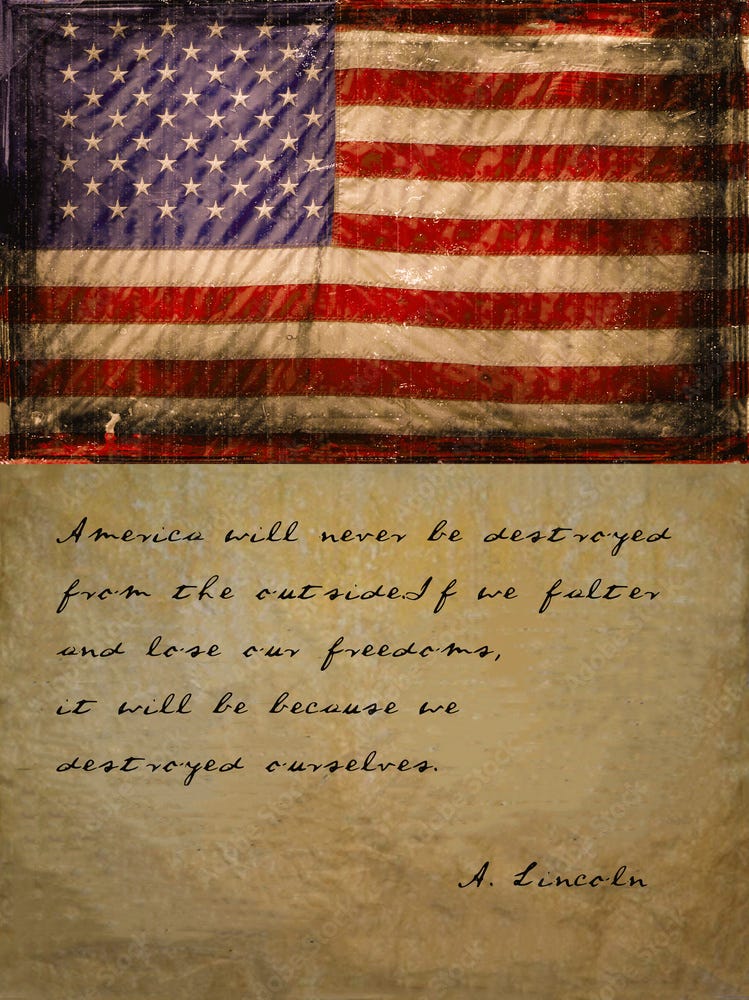 America will never be destroyed
from the outside.If we falter
and lose our freedoms,
it will be because we
destroyed ourselves.
A. Lincoln